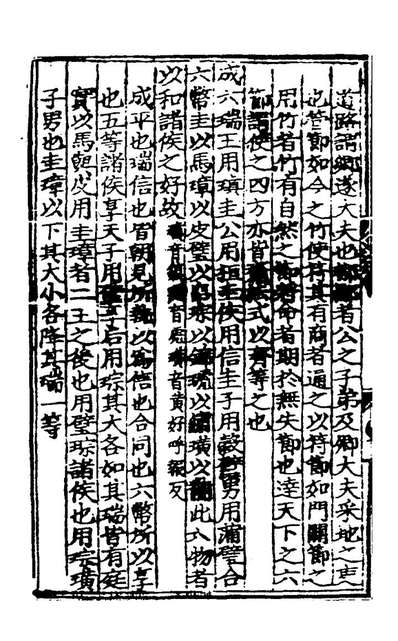 道路謂鄉遂大夫也都鄙者公之子弟及卿大夫采地之吏
也管節如今之竹使符其有商者通之以符節如門關節之
用竹者竹有自然之節符命者期於無失節也達天下之六
節謂使之四方亦皆法式以齊等之也
成六瑞王用瑱圭公用桓圭侯用信圭子用穀璧男用蒲璧合
六幣圭以馬璋以皮璧以帛琮以錦琥以繡璜以黼此六物者
以和諸侯之好故音音好呼報反
成平也瑞信也皆朝見所執以為信也合同也六幣所以享
也五等諸侯享天子用璧享后用琮其大各如其瑞皆有庭
實以馬皮用圭璋者二王之後也用璧琮諸侯也用琮璜
子男也圭璋以下其大小各降其瑞一等